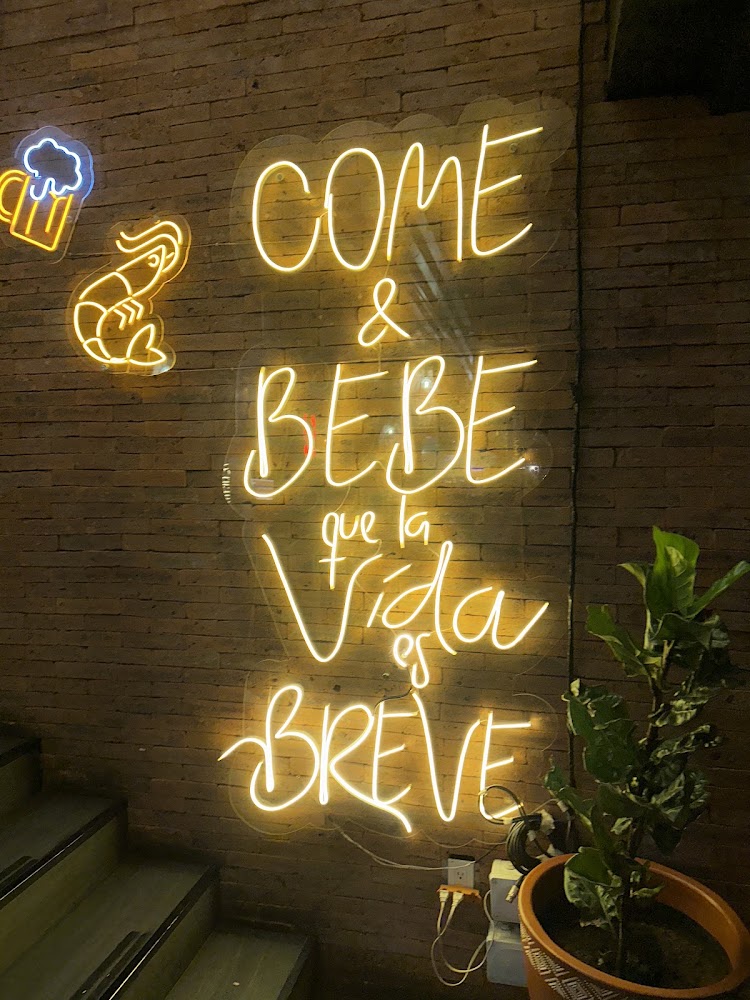 COME
&
BEBE
que la
Vida
es
BREVE